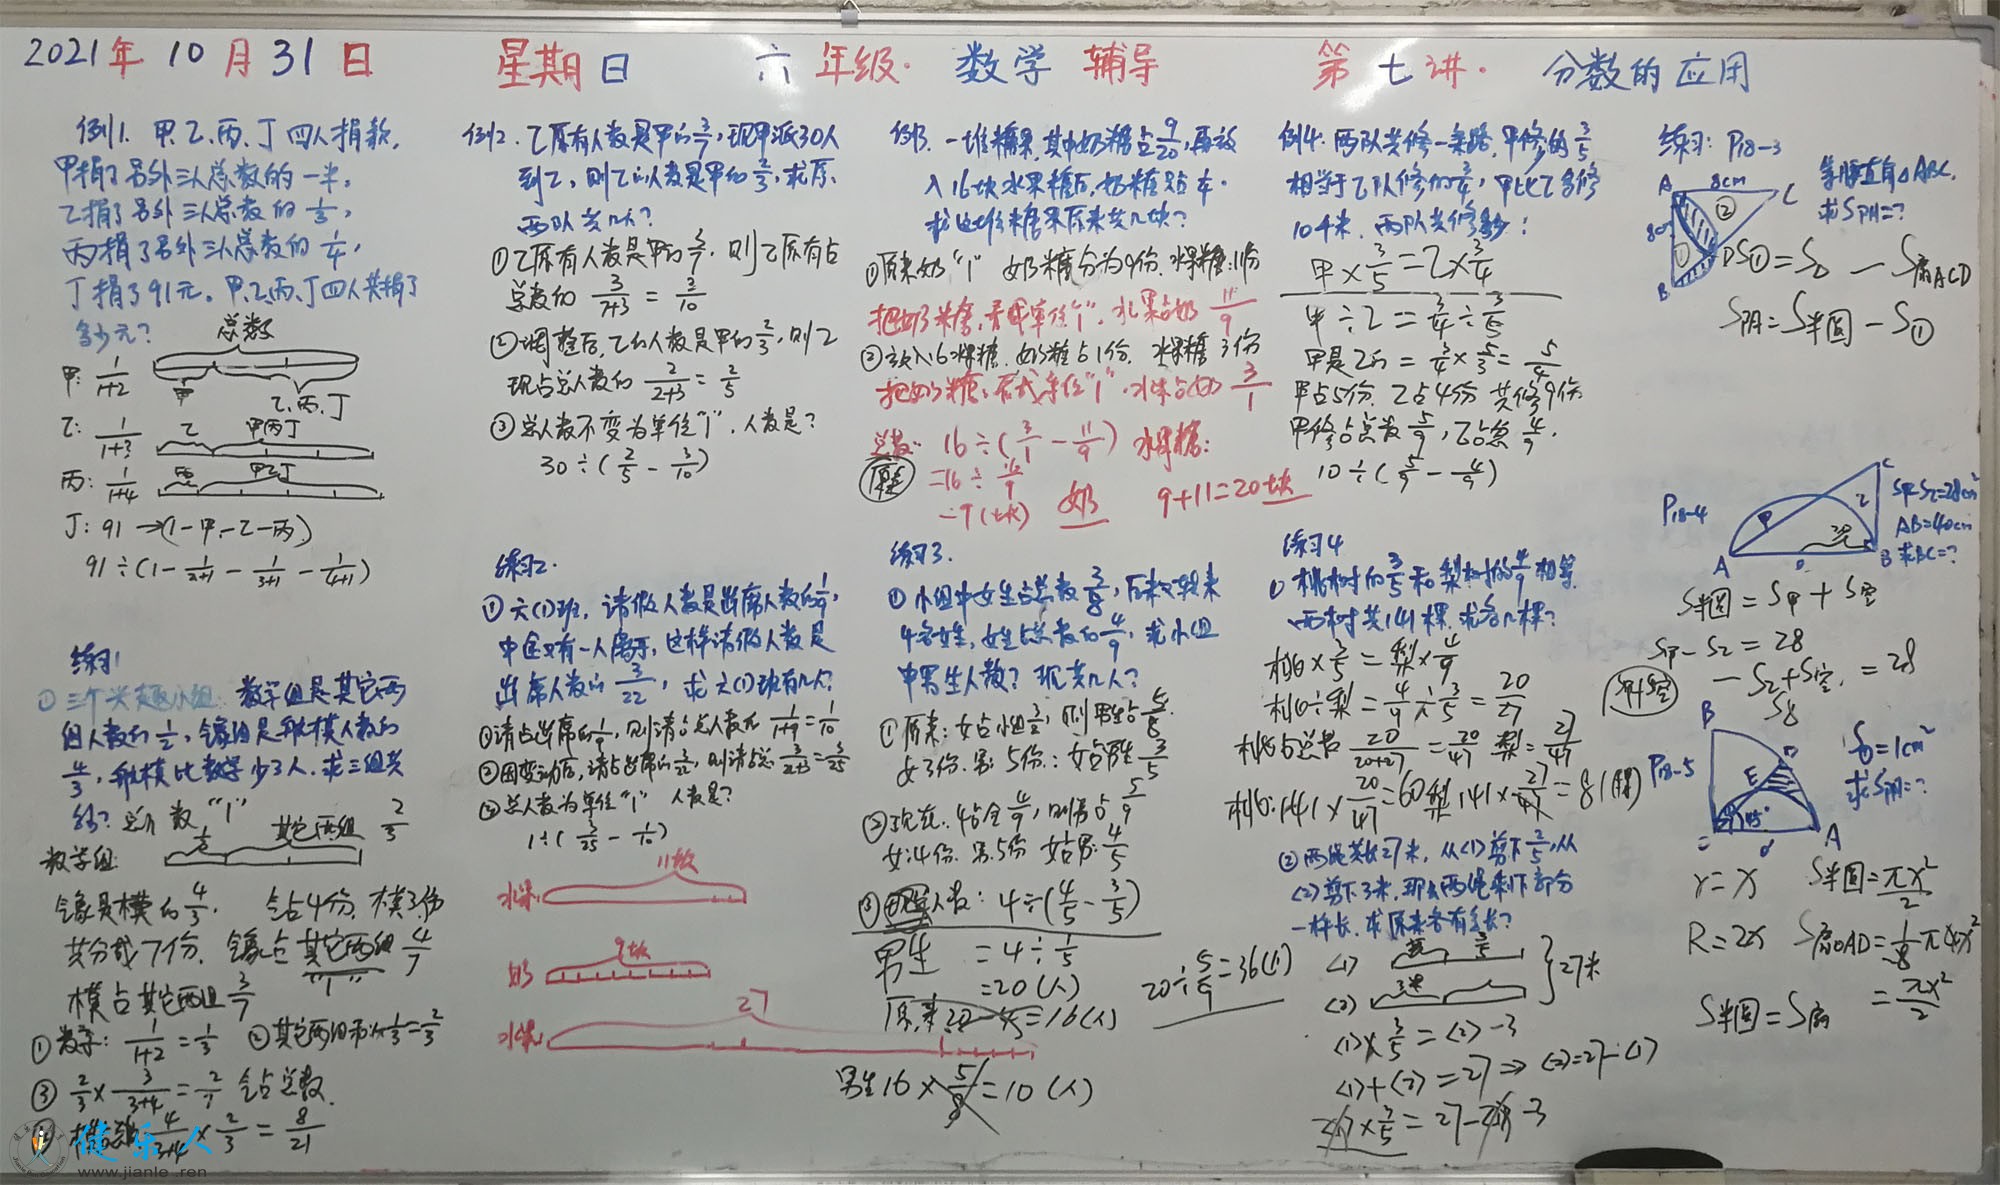 2021年10月31日 星期日 六年级·数学 辅导 第七讲· 分数的应用
例1. 甲、乙、丙、丁四人捐款,
甲捐了另外三人总数的一半,
乙捐了另外三人总数的 1/3,
丙捐了另外三人总数的 1/4,
丁捐了91元。甲、乙、丙、丁四人共捐了
多少元?
总数
甲: 1/(1+2)
甲
乙、丙、丁
乙: 1/(1+3)
乙 甲丙丁
丙: 1/(1+4)
丙 甲乙丁
丁: 91 →(1-甲-乙-丙)
91÷(1 - 1/(2+1) - 1/(3+1) - 1/(4+1))
练习1
①三个兴趣小组, 数学组是其它两
组人数的 1/2,
4/3, 航模比数学少3人. 求三组共
总人数"1"
其它两组 2/3
数学组
是模的 4/3. 占4份, 模3份
共分成7份. 占其它两组 4/7
"1"
模占其它两组 3/7
①数学: 1/(1+2) = 1/3
③ 2/3 × 3/(3+4) = 2/7 占总数.
4/(3+4) × 2/3 = 8/21
健乐人
www.jianle.ren
例2. 乙原有人数是甲的 3/7, 现甲派30人
到乙, 则乙的人数是甲的 2/3, 求原
两队共几人?
①乙原有人数是甲的 3/7, 则乙原有占
总数的 3/(7+3) = 3/10
②调整后, 乙的人数是甲的 2/3, 则乙
现占总人数的 2/(2+3) = 2/5
③总人数不变为单位"1". 人数是?
30÷(2/5 - 3/10)
练习2.
①六(1)班, 请假人数是出席人数的 1/9,
中途又有一人离开, 这样请假人数是
出席人数的 3/22, 求六(1)班有几人?
①请占出席的 1/9, 则请占总人数的 1/(1+9) = 1/10
②因变动后, 请占出席的 3/22, 则请占总 3/(22+3) = 3/25
③总人数为单位"1" 人数是?
1÷(3/25 - 1/10)
11块
水果:
9块
奶
27
水果:
例3. 一堆糖果, 其中奶糖占 9/20, 再放
入16块水果糖后, 奶糖只占 1/4.
求这堆糖果原来共几块?
①原来奶"1" 奶糖分为9份. 水果糖:11份
把奶糖,看成单位"1". 水果占奶 11/9
②放入16水果糖. 奶糖占1份. 水果糖3份
把奶糖, 看成单位"1". 水果占奶 3/1
16÷(3/1 - 11/9) 水果糖:
原来
=16÷16/9
=9(块) 奶 9+11=20块
练习3.
①小组中女生占总数 3/8, 后来又转来
4名女生, 女生占总数的 4/9, 求小组
中男生人数? 现共几人?
①原来: 女占小组 3/8, 则男生占 5/8.
女3份. 男: 5份.: 女占男生 3/5
②现在: 女占全 4/9, 则男占 5/9
女:4份. 男:5份 女占男: 4/5
人数: 4÷(4/5 - 3/5)
男生 =4÷1/5
=20(人) 20÷5/9=36(人)
=16(人)
男生16×5/8=10(人)
例4. 两队共修一条路, 甲修的 3/5
相当于乙队修的 3/4, 甲比乙多修
10千米. 两队共修多少?
甲×3/5 = 乙×3/4
甲÷乙 = 3/4÷3/5
甲是乙的 = 3/4×5/3 = 5/4
甲占5份. 乙占4份 共修9份
甲修占总数 5/9, 乙占总 4/9.
10÷(5/9 - 4/9)
练习4
①桃树的 3/5 和梨树的 4/9 相等.
两树共141棵. 求各几棵?
桃×3/5 = 梨×4/9
桃÷梨 = 4/9÷3/5 = 20/27
桃占总 20/(20+27) = 20/47 梨=27/47
桃:141×20/47=60 梨141×27/47=81(棵)
②两绳共长27米, 从(1)剪下 2/5, 从
(2)剪下3米, 那么两绳剩下部分
一样长. 求原来各有多长?
(1) 3/5
(2) 3米
27米
(1)×3/5=(2)-3
(1)+(2)=27⇒(2)=27-(1)
练习: P18-3
A 8cm C
8cm
① ②
B D
等腰直角△ABC,
求S阴=?
S①=S△ - S扇ACD
S阴=S半圆-S①
P18-4
甲 乙 A B C
S甲-S乙=28cm²
AB=40cm
求BC=?
S半圆=S甲+S空
S甲-S乙=28
-S乙+S空 =28
P18-5
B D E A 45°
S=1cm²
求S阴=?
r=x S半圆=πx²/2
R=2x S扇OAD=1/8π4x²
S半圆=S扇 =πx²/2